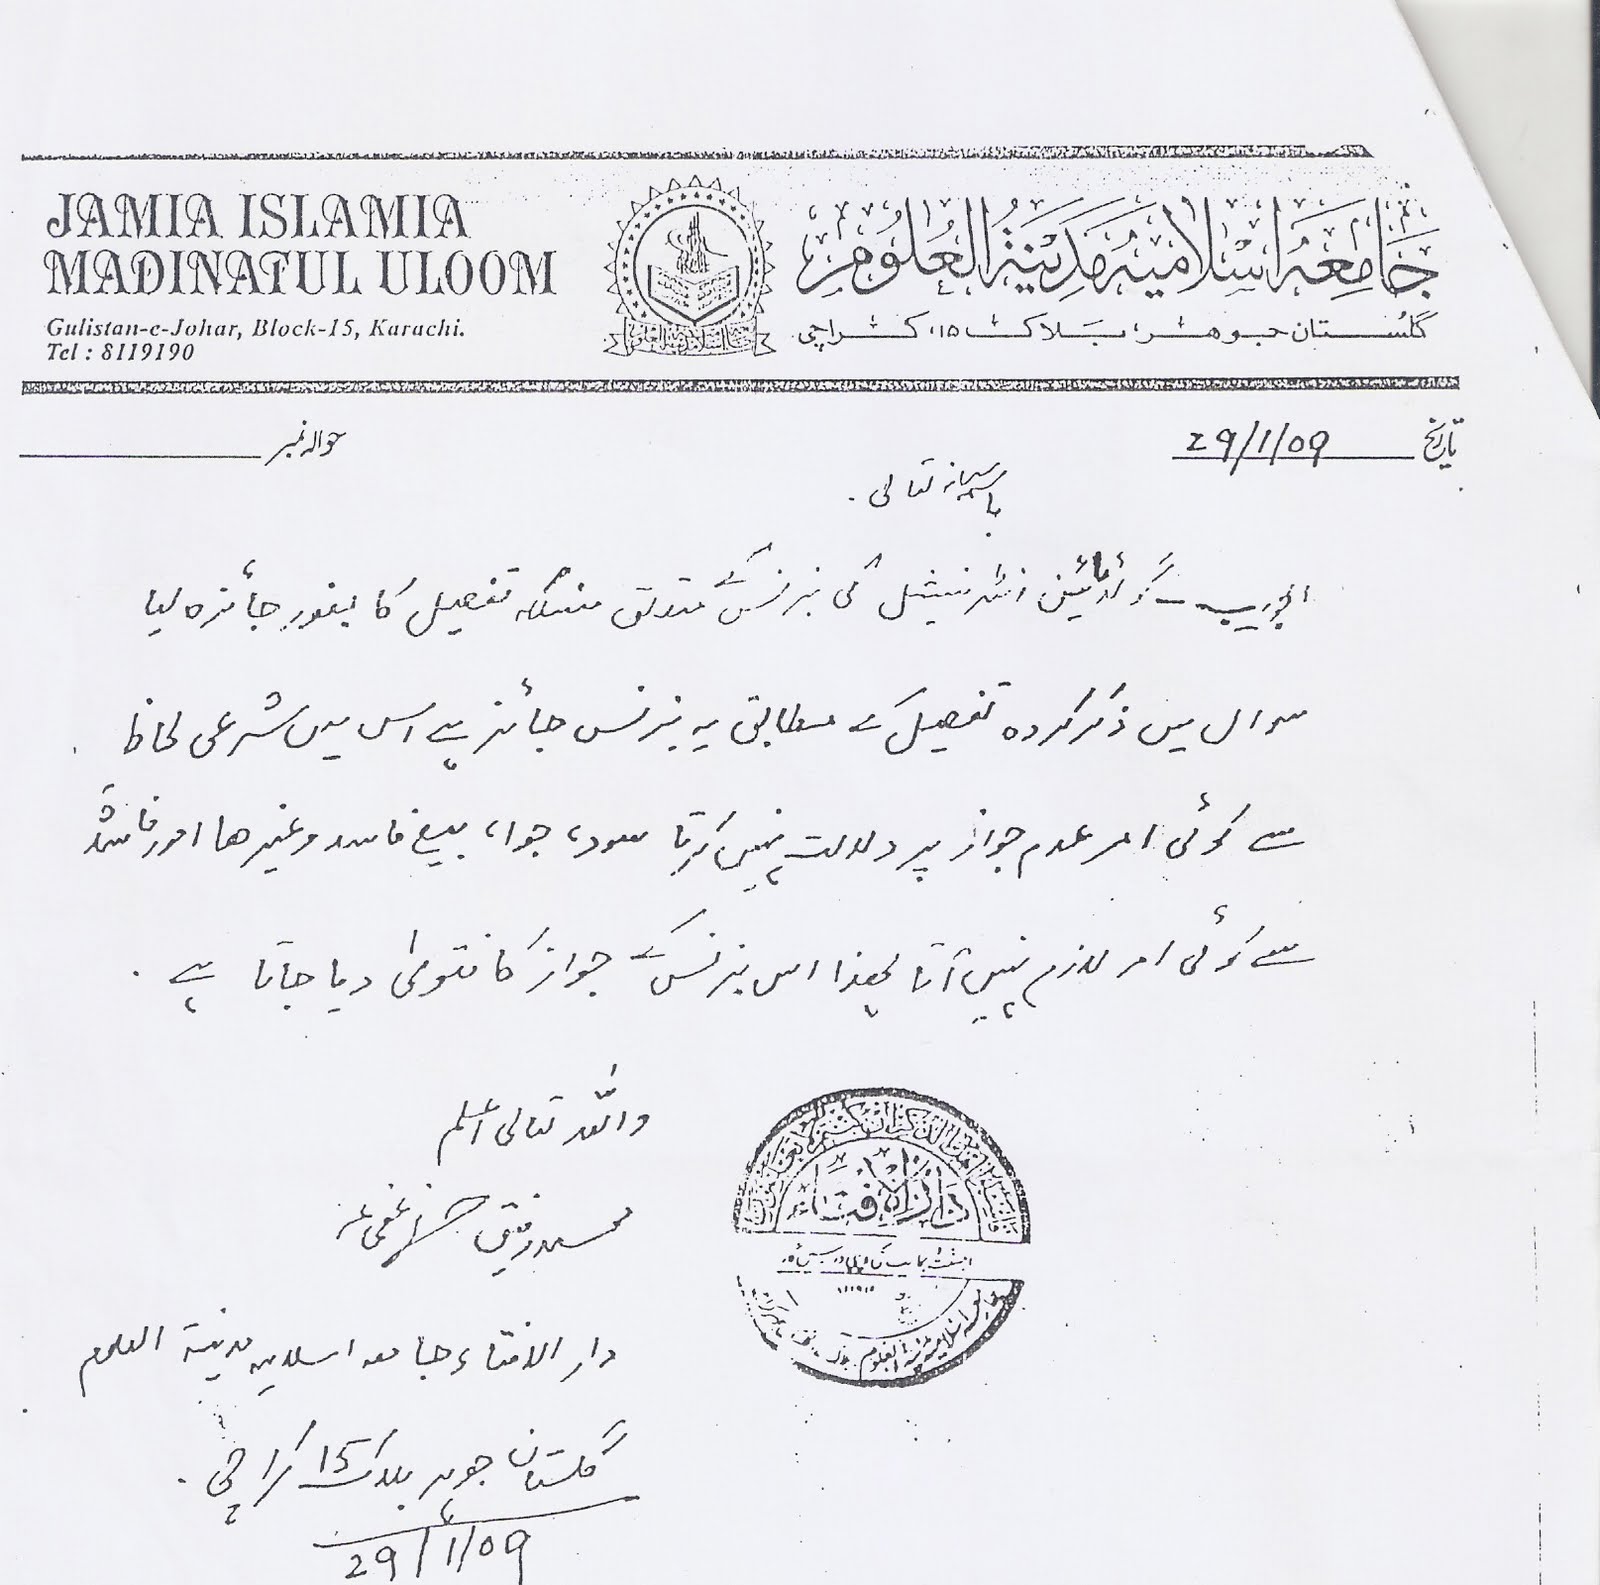 JAMIA ISLAMIA
MADINATUL ULOOM
Gulistan-e-Johar, Block-15, Karachi.
Tel : 8119190
جامعہ اسلامیہ مدینۃ العلوم
گلستان جوہر، بلاک ۱۵، کراچی
تاریخ 29/1/09
حوالہ نمبر
باسمہ سبحانہ تعالی
الجواب گولڈ مائین انٹرنیشنل کی بزنس کے متعلق منسلکہ تفصیل کا بغور جائزہ لیا
سوال میں ذکر کردہ تفصیل کے مطابق یہ بزنس جائز ہے اس میں شرعی لحاظ
سے کوئی امر عدم جواز پر دلالت نہیں کرتا سود، جوا، بیع فاسد وغیرھا اور
سے کوئی امر لازم نہیں آتا لھذا اس بزنس کے جواز کا فتوی دیا جاتا ہے۔
واللہ تعالی اعلم
محمد رفیق عفی عنہ
دار الافتاء جامعہ اسلامیہ مدینۃ العلوم
گلستان جوہر بلاک 15 کراچی۔
29/1/09
دار الافتاء
جامعہ اسلامیہ مدینۃ العلوم